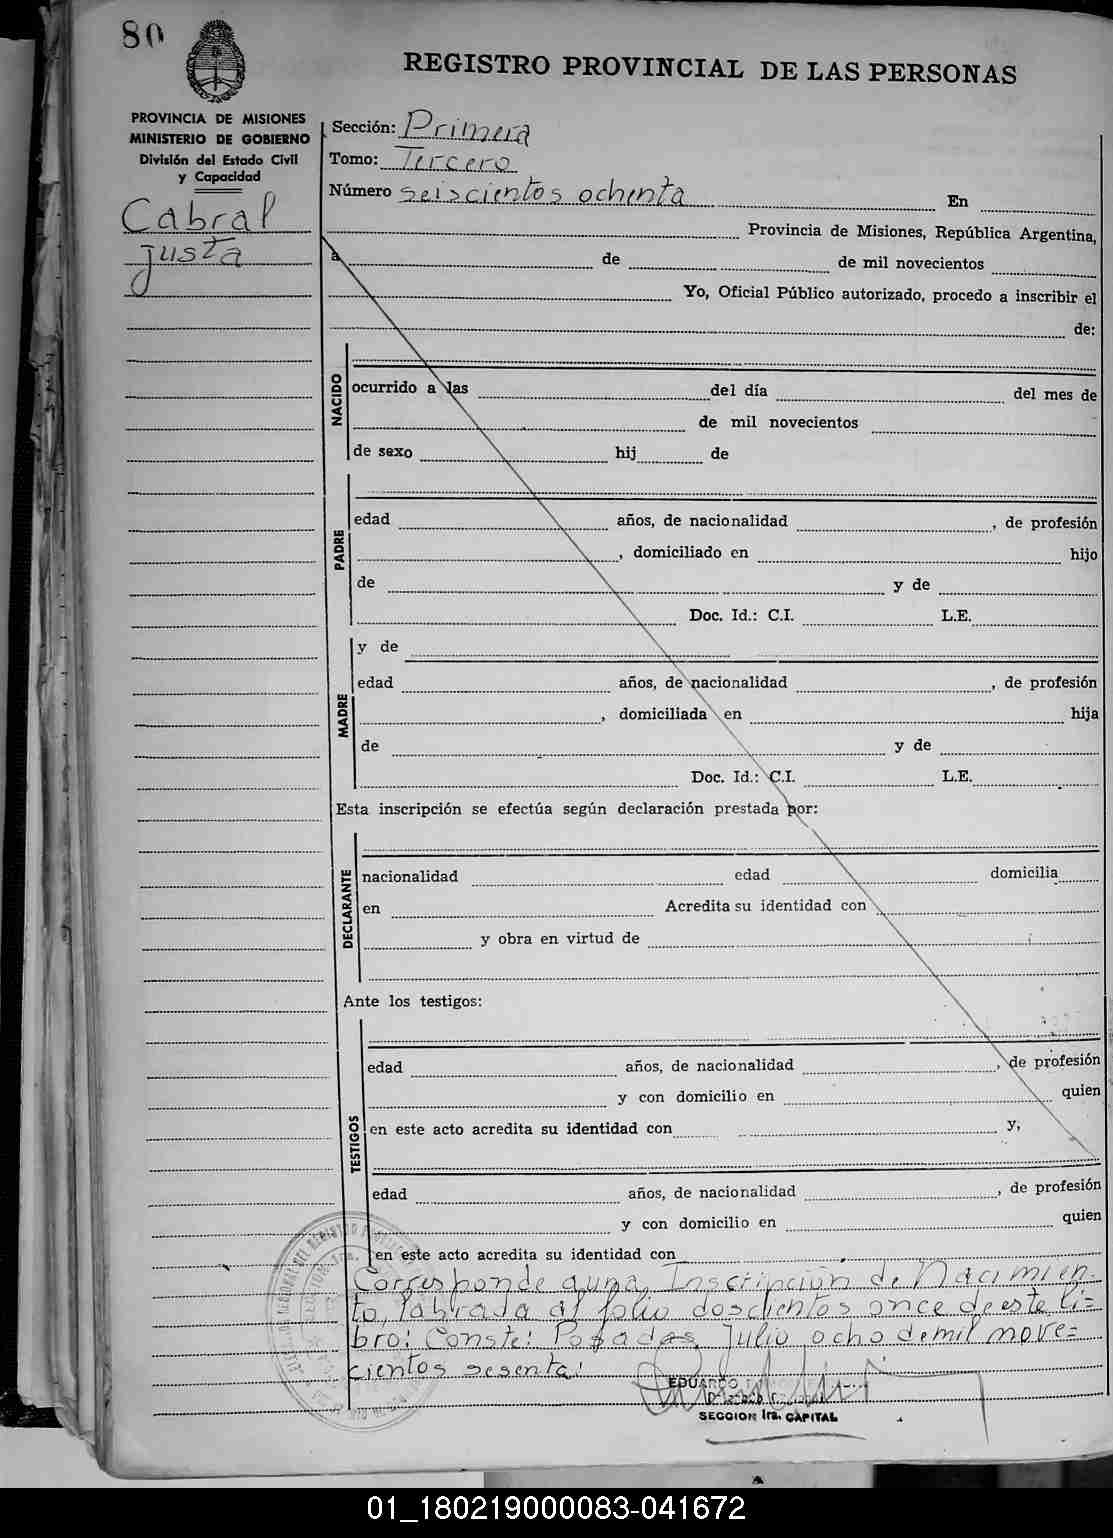 80
REGISTRO PROVINCIAL DE LAS PERSONAS
PROVINCIA DE MISIONES
MINISTERIO DE GOBIERNO
División del Estado Civil
y Capacidad
Cabral
Justa
Sección: Primera
Tomo: Tercero
Número seiscientos ochenta En
Provincia de Misiones, República Argentina,
a de de mil novecientos
Yo, Oficial Público autorizado, procedo a inscribir el
de:
NACIDO
ocurrido a las del día del mes de
de mil novecientos
de sexo hij de
PADRE
edad años, de nacionalidad , de profesión
, domiciliado en hijo
de y de
Doc. Id.: C.I. L.E.
MADRE
y de
edad años, de nacionalidad , de profesión
, domiciliada en hija
de y de
Doc. Id.: C.I. L.E.
Esta inscripción se efectúa según declaración prestada por:
DECLARANTE
nacionalidad edad domicilia
en Acredita su identidad con
y obra en virtud de
Ante los testigos:
TESTIGOS
edad años, de nacionalidad , de profesión
y con domicilio en quien
en este acto acredita su identidad con y,
edad años, de nacionalidad , de profesión
y con domicilio en quien
en este acto acredita su identidad con
Corresponde a una Inscripción de Nacimien-
to, labrada al folio doscientos once de este li=
bro: Conste: Posadas, Julio ocho de mil nove=
cientos sesenta:
EDUARDO
SECCION 1ra. CAPITAL
01_180219000083-041672